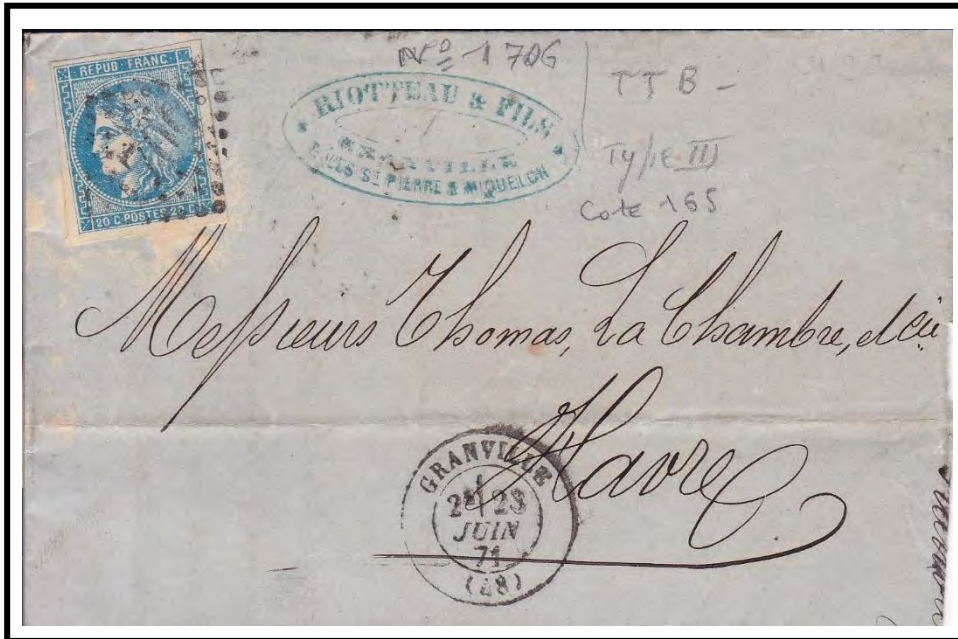 REPUB·FRANC·
20 C·POSTES·20 C
Nº 1706
TTB -
Type III
Cote 165
RIOTTEAU & FILS
GRANVILLE
St PIERRE & MIQUELON
Messieurs Thomas, La Chambre, et Cie
Havre
GRANVILLE
2E 23
JUIN
71
(48)